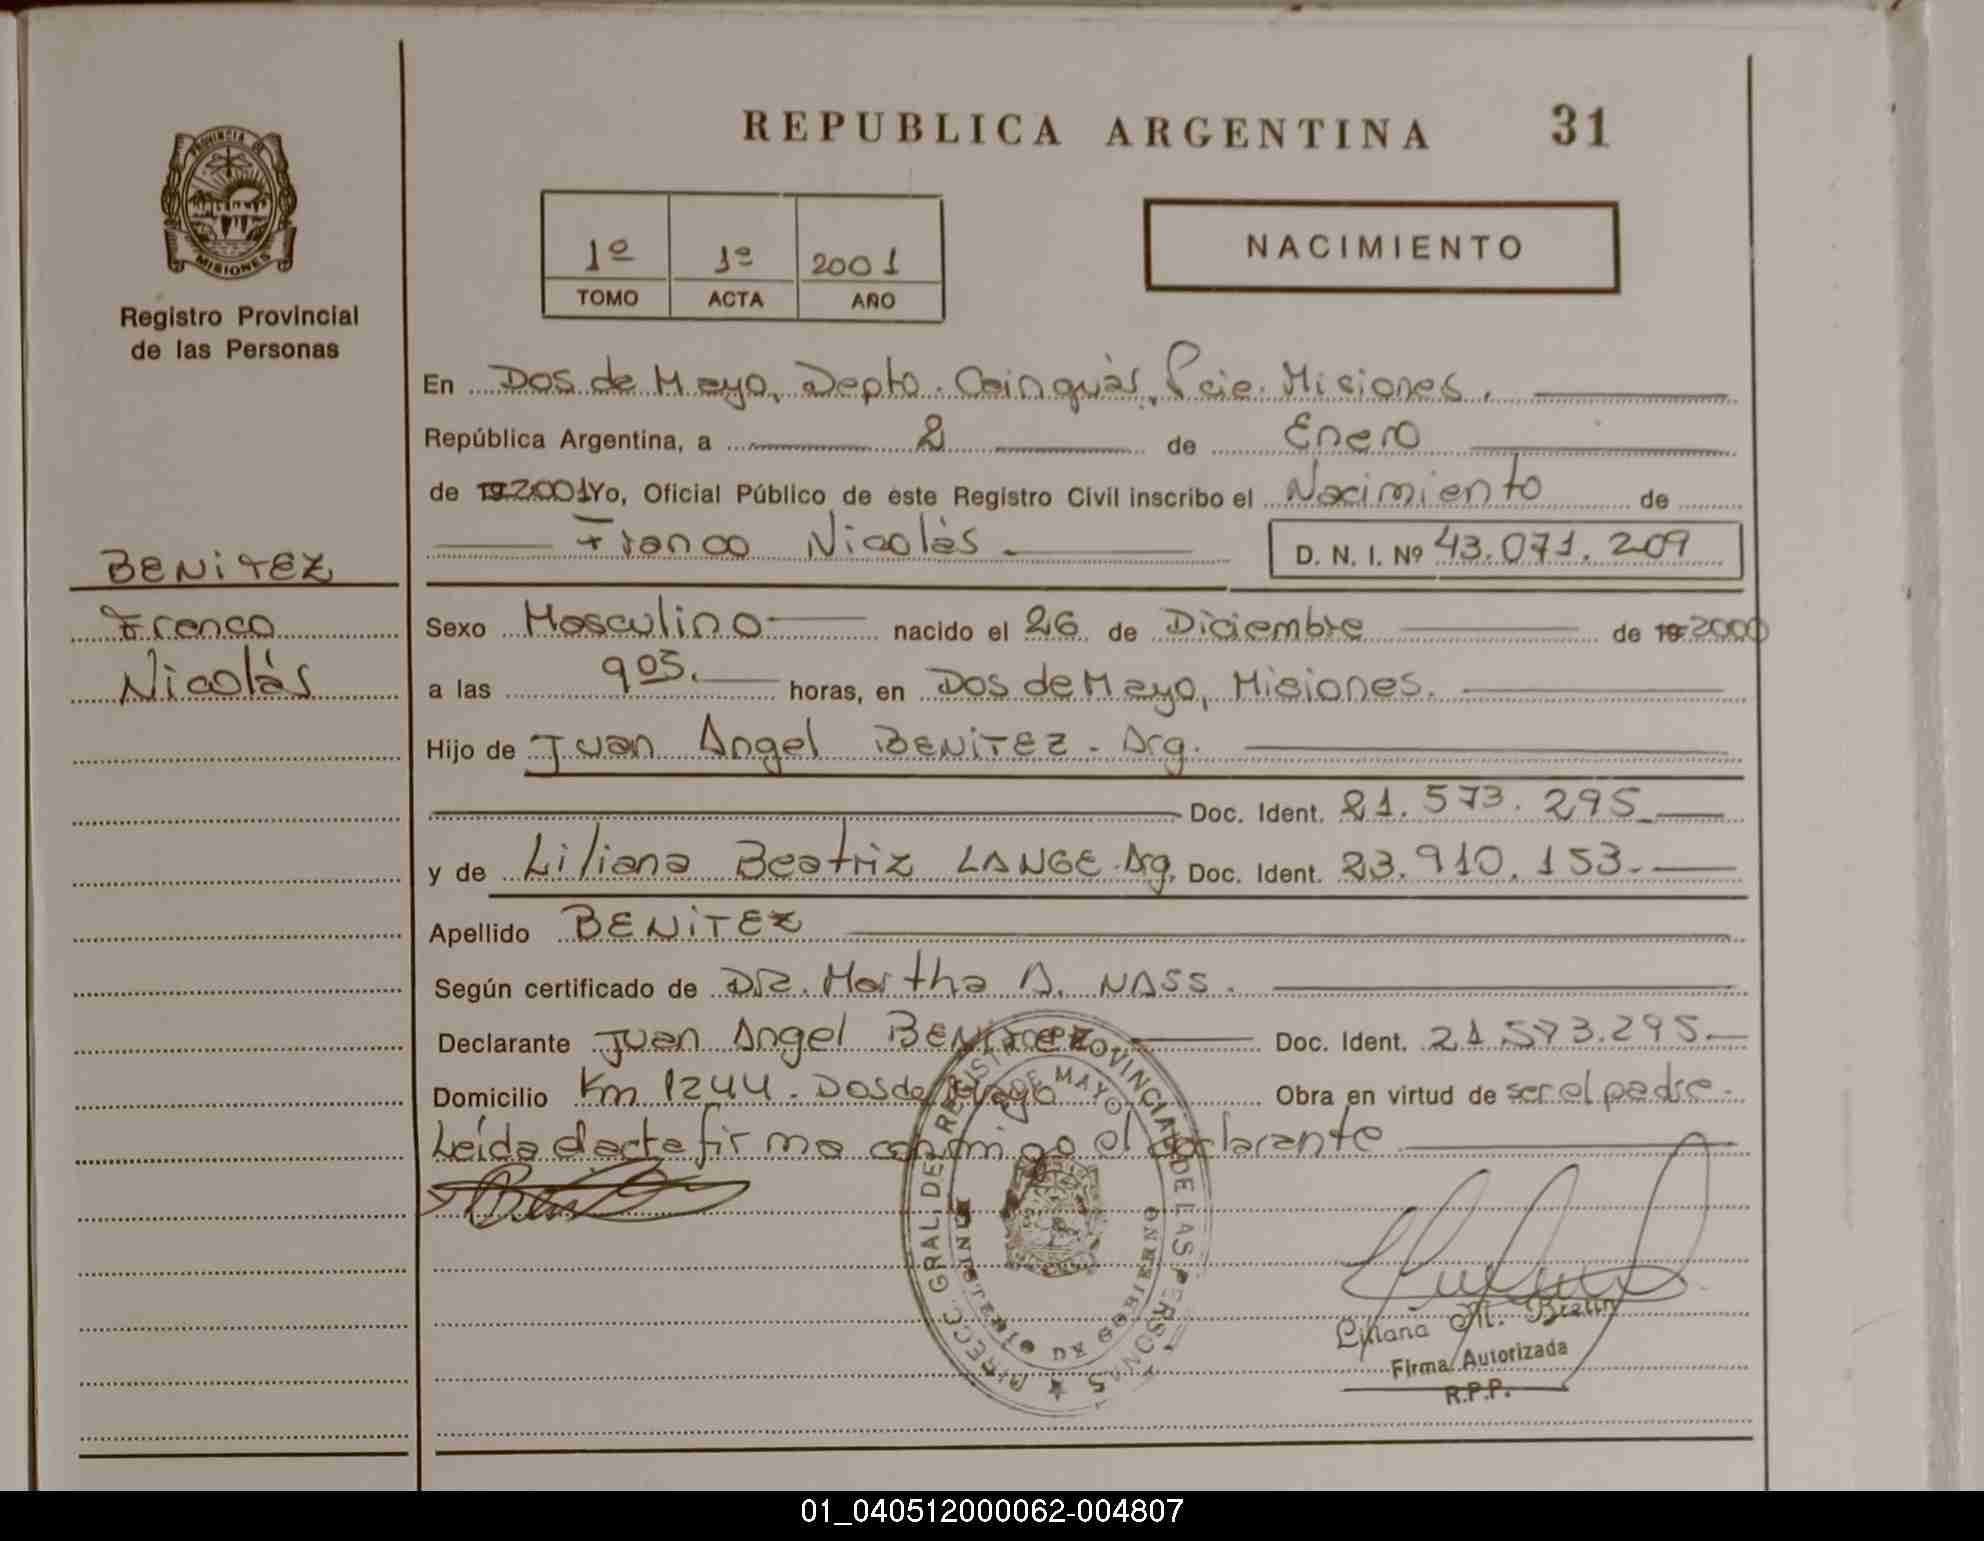 REPUBLICA ARGENTINA 31
PROVINCIA DE
MISIONES
Registro Provincial
de las Personas
1º 1º 2001
TOMO ACTA AÑO
NACIMIENTO
En Dos de Mayo, Depto. Cainguás, Pcia. Misiones.
República Argentina, a 2 de Enero
de 19 2001 Yo, Oficial Público de este Registro Civil inscribo el Nacimiento de
Franco Nicolás D. N. I. Nº 43.071.209
BENITEZ
Franco
Nicolás
Sexo Masculino nacido el 26 de Diciembre de 19 2000
a las 905. horas, en Dos de Mayo, Misiones.
Hijo de Juan Angel BENITEZ - Arg.
Doc. Ident. 21.573.295
y de Liliana Beatriz LANGE - Arg. Doc. Ident. 23.910.153.
Apellido BENITEZ
Según certificado de DR. Martha A. NASS.
Declarante Juan Angel BENITEZ Doc. Ident. 21.573.295.
Domicilio Km 1244 - Dos de Mayo Obra en virtud de ser el padre.
Leída el acta firma conmigo el declarante
DIRECC. GRAL. DE REGISTRO PROVINCIAL DE LAS PERSONAS
DE MAYO
MINISTERIO DE GOBIERNO
Liliana M.
Firma Autorizada
R.P.P.
01_040512000062-004807